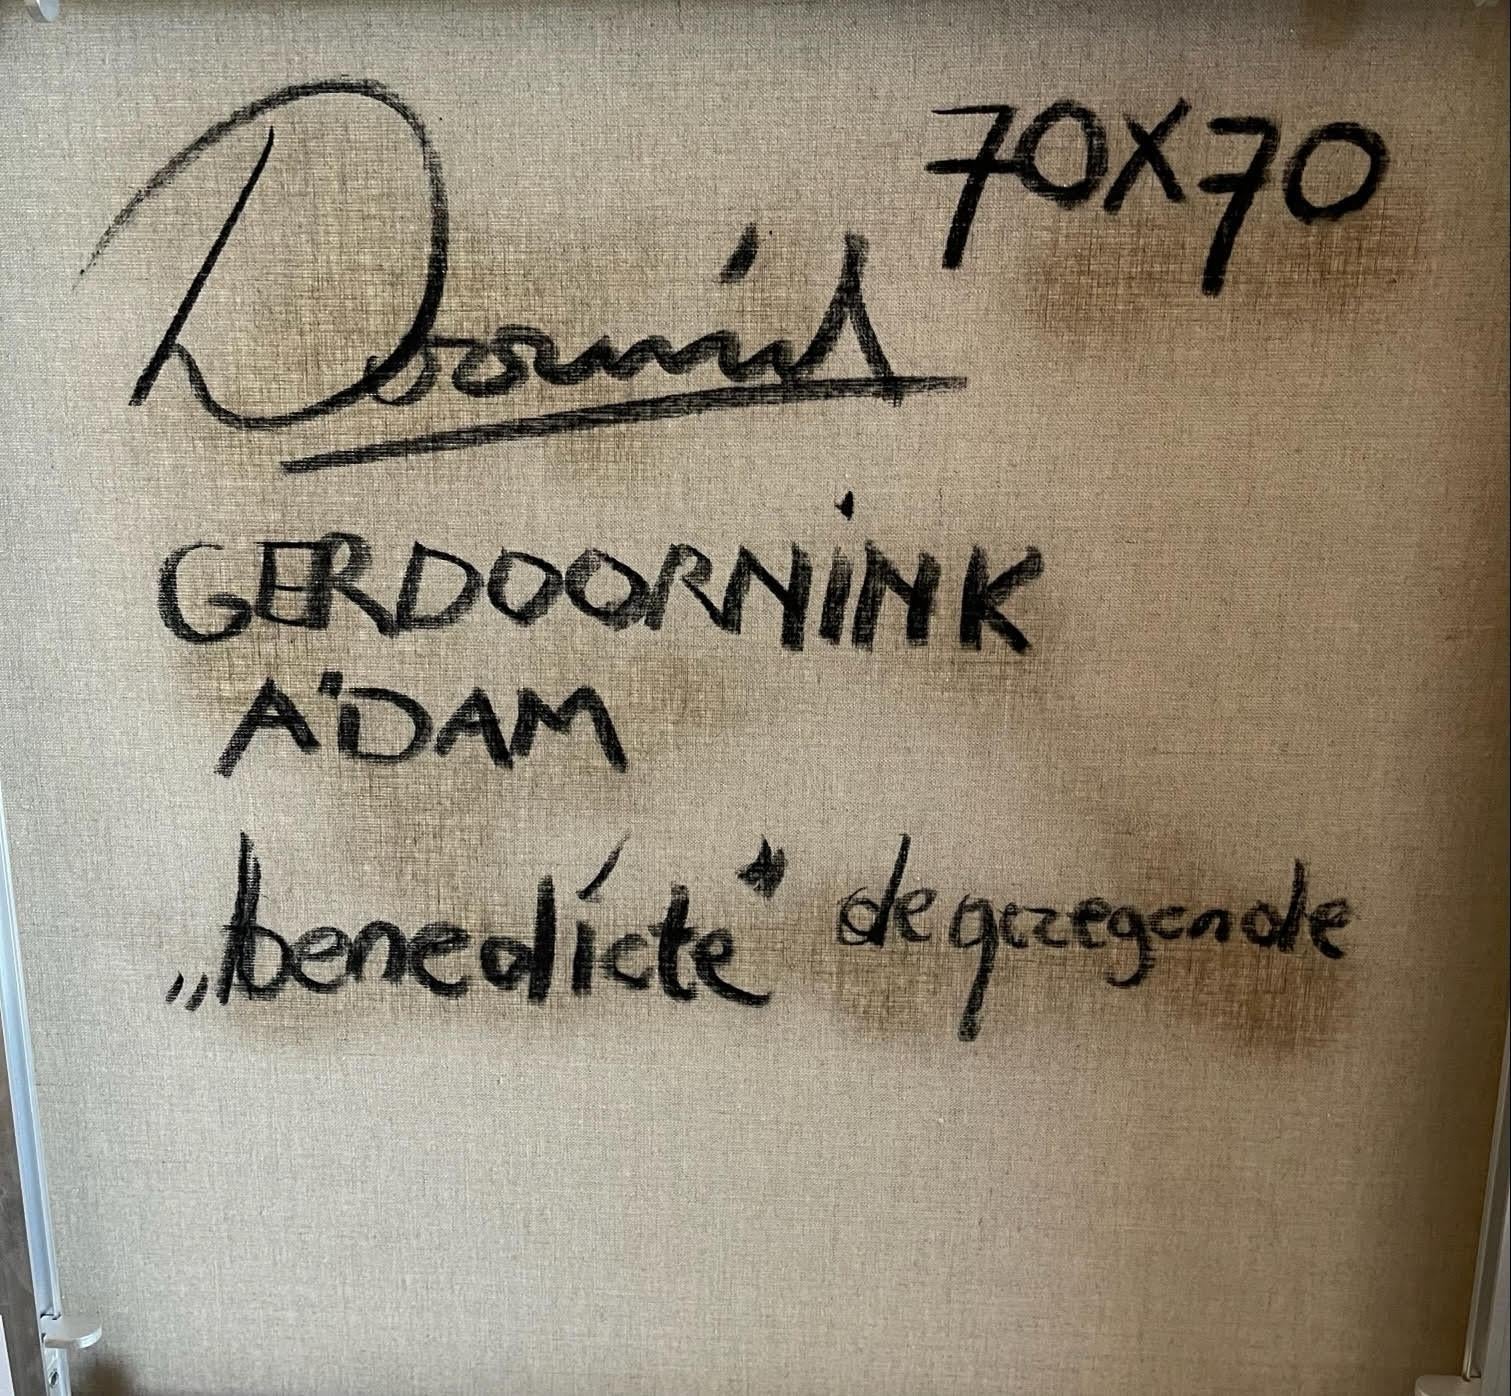 70X70
Doornink
GERDOORNiNK
A'DAM
„benedícte" de gezegende